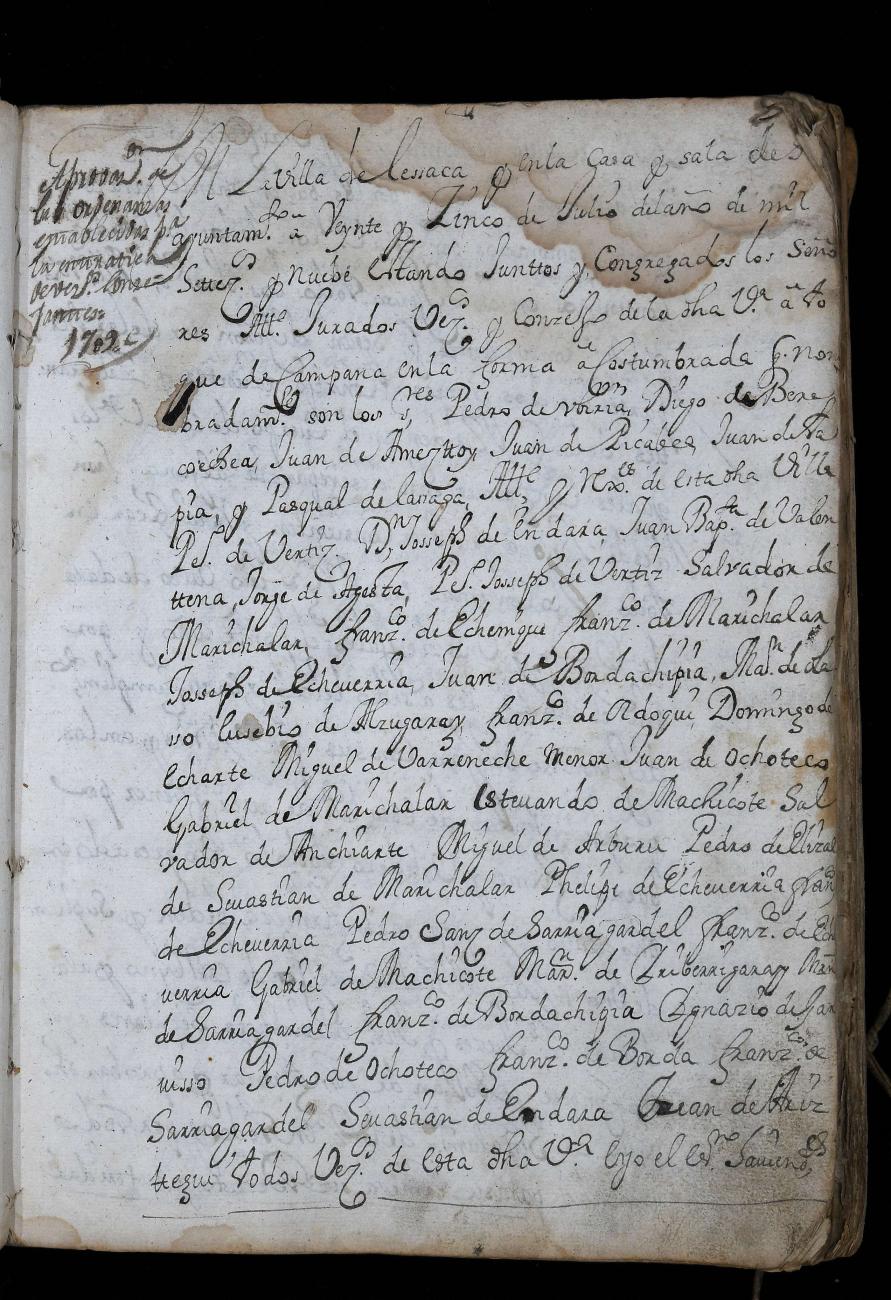 Aprovaon. de
las ordenanzas
establecidas pa
la
de verso. Conze
jantes
1709
En La Villa de Lessaca y en la Casa y sala de
ayuntamto. a Veynte y Zinco de Julio del año de mil
Settezos. y nuebe Estando Junttos y Congregados los Seño
res Alle. Jurados Vezos. y Conzejo de la dha Va. a to
que de Campana en la forma acostumbrada q. nom
bradamte. son los ss,res Pedro de Dn Diego de Bereg
coechea, Juan de Amezttoy, Juan de Picabea, Juan de Ta
pia, y Pasqual de lasaga, Alle, y Rexres. de esta dha Villa
Pes. de Vertiz. Dn, Josseph de Endara, Juan Bapta. de Valen
ttena, Jorje de Agesta, Pes. Josseph de Vertiz Salvador de
Marichalar, franzco. de Echenique franzco. de Marichalar
Josseph de Echeverria, Juan de Bordachipia, Marn. de ola
sso Eusebio de Alzugaray, franzco. de Ordogui, Domingo de
Echarte Miguel de Varreneche Menor Juan de Ochoteco
Gabriel de Marichalar Estevando de Machicote Sal
vador de Anchiarte Miguel de Arburu Pedro de Elizal
de Sevastian de Marichalar Phelipe de Echeverria fran
de Echeverria Pedro Sanz de Sarriagardel franzco. de Eche
verria Gabriel de Machicote Marn. de Iriberrigaray Marn
de Sarriagardel franzco. de Bordachipia Ignazio de Gar
visso Pedro de Ochoteco franzco. de Borda franzco. de
Sarriagardel Sevastian de Endara Juan de Ariz
ttegui todos Vezos. de esta dha Va. e yo el esno.